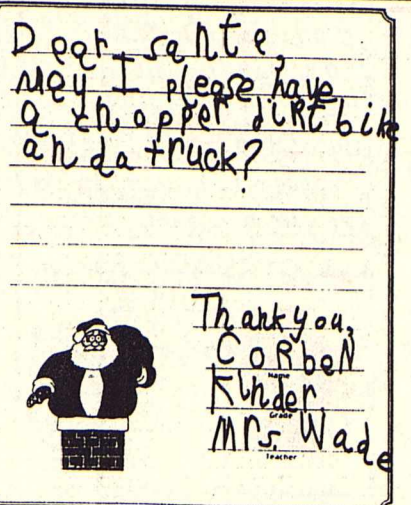 Dear sante,
Mey I please have
a chopper dirt bike
and a truck?
Thank you,
CoRbeN
Name
Kinder.
Grade
Mrs. Wade
Teacher